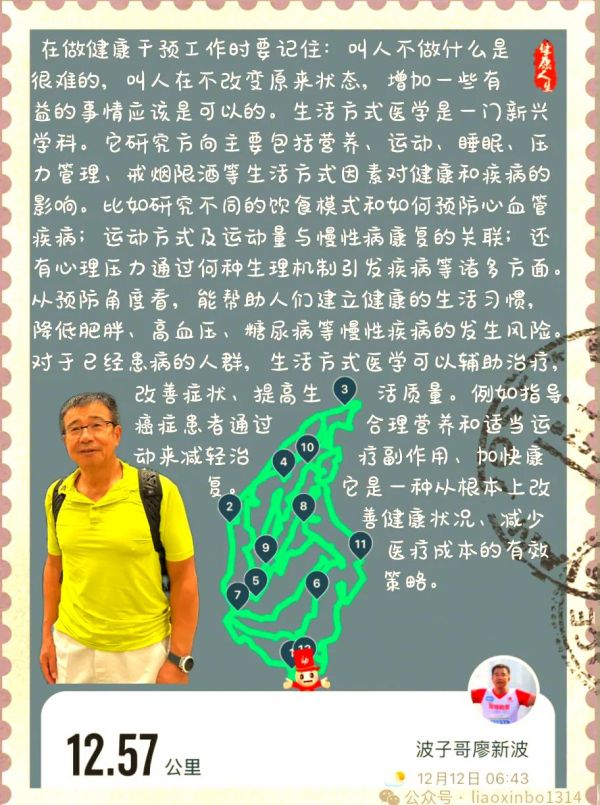 在做健康干预工作时要记住：叫人不做什么是
很难的，叫人在不改变原来状态，增加一些有
益的事情应该是可以的。生活方式医学是一门新兴
学科。它研究方向主要包括营养、运动、睡眠、压
力管理、戒烟限酒等生活方式因素对健康和疾病的
影响。比如研究不同的饮食模式和如何预防心血管
疾病；运动方式及运动量与慢性病康复的关联；还
有心理压力通过何种生理机制引发疾病等诸多方面。
从预防角度看，能帮助人们建立健康的生活习惯，
降低肥胖、高血压、糖尿病等慢性疾病的发生风险。
对于已经患病的人群，生活方式医学可以辅助治疗，
改善症状、提高生活质量。例如指导
癌症患者通过合理营养和适当运
动来减轻治疗副作用、加快康
复。它是一种从根本上改
善健康状况、减少
医疗成本的有效
策略。
健康人生
3
10
4
2
8
9
11
5
6
7
12.57 公里
波子哥廖新波
12月12日 06:43
公众号 · liaoxinbo1314